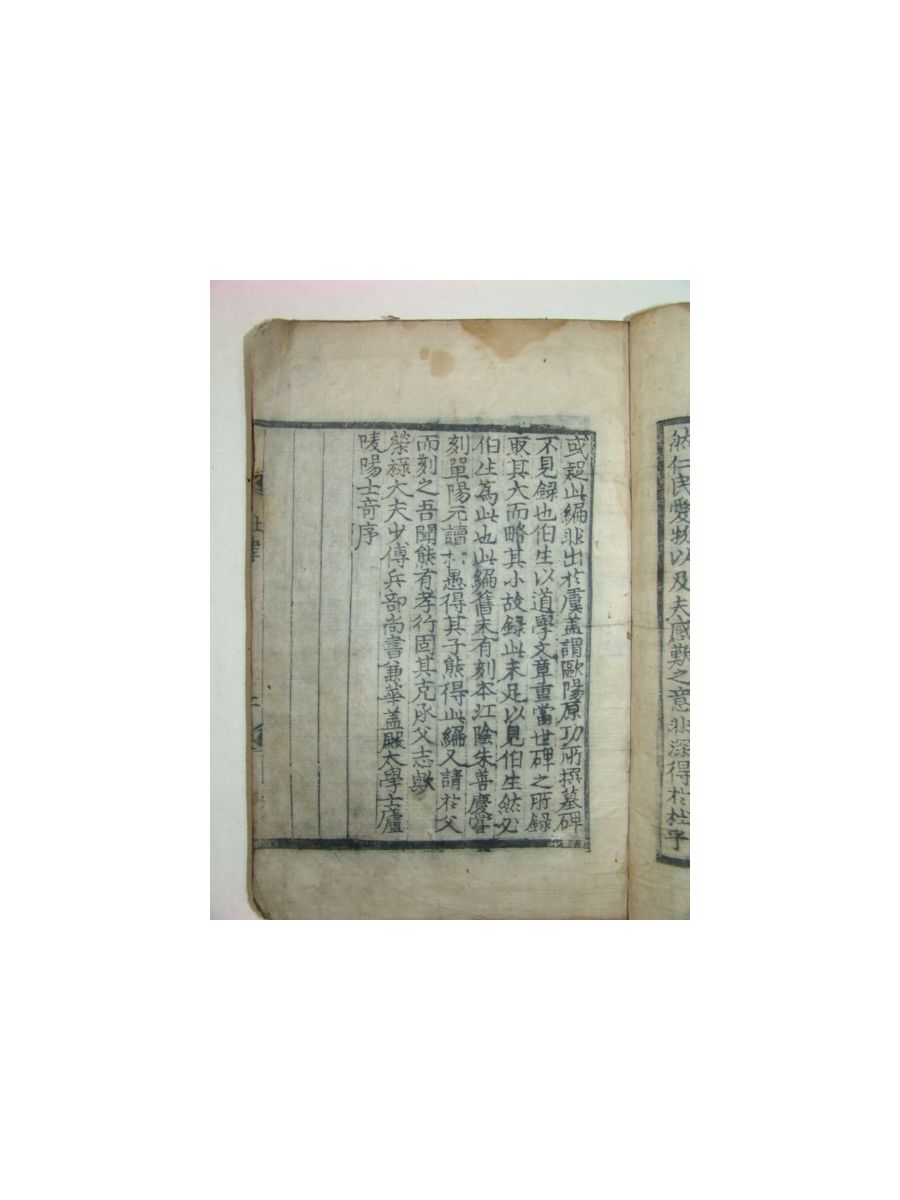 然仁民愛物以及夫感歎之意非深得於杜乎
或疑此編非出於虞盖謂歐陽原功所撰墓碑
不見録也伯生以道學文章重當世碑之所録
取其大而略其小故録此未足以見伯生然必
伯生為此也此編舊未有刻本江陰朱善慶嘗
刻單陽元讀杜愚得其子熊得此編又請於父
而刻之吾聞熊有孝行固其克承父志歟
榮祿大夫少傅兵部尚書兼華盖殿大學士廬
陵陽士竒序
杜律
二